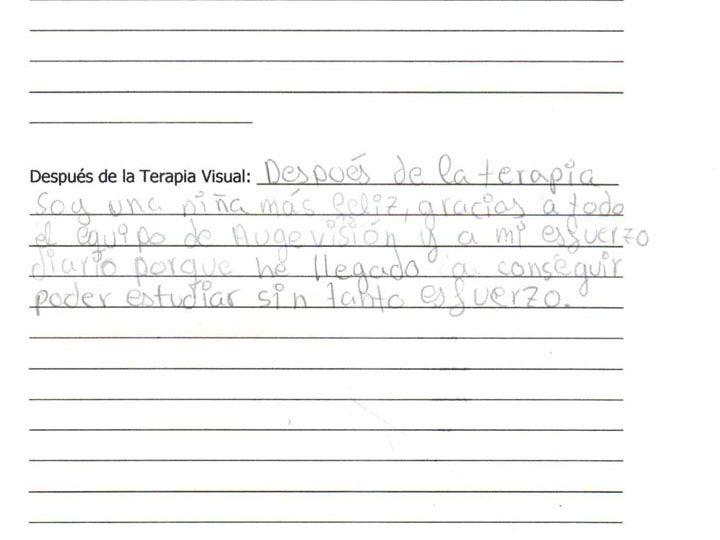 Después de la Terapia Visual: Después de la terapia
Soy una niña más feliz, gracias a todo
el equipo de Augevisión y a mi esfuerzo
diario porque he llegado a conseguir
poder estudiar sin tanto esfuerzo.